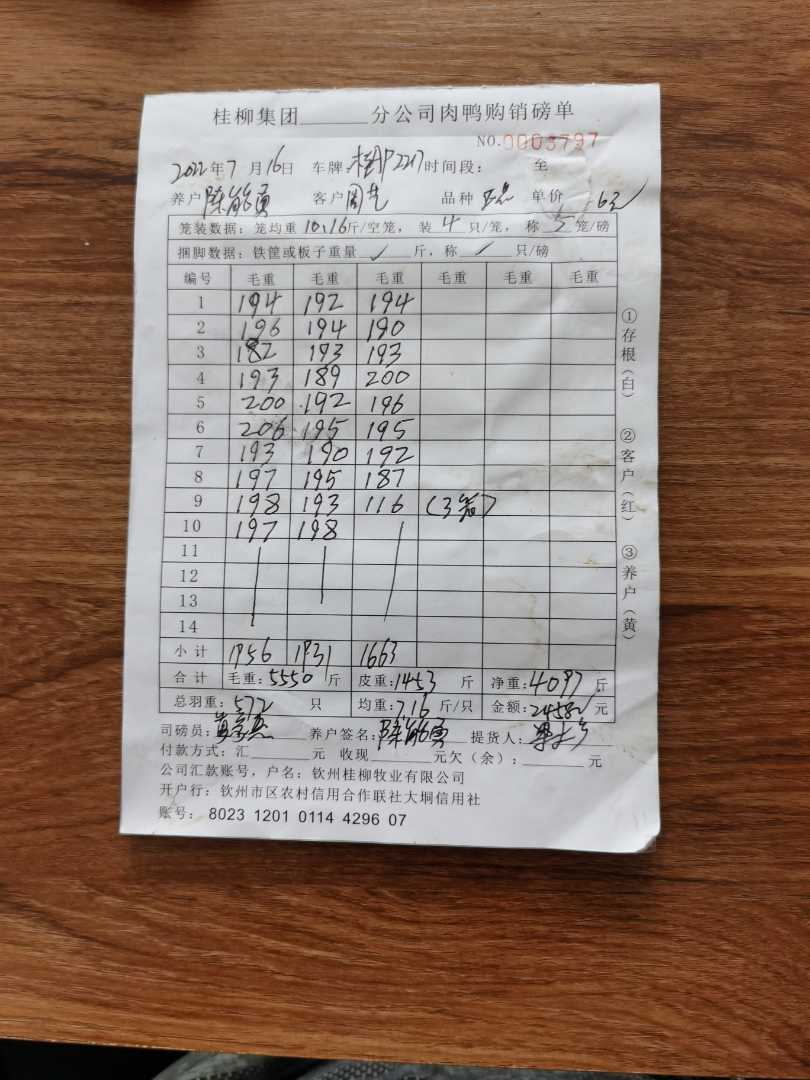 桂柳集团______分公司肉鸭购销磅单
NO.0003797
2022年7月16日 车牌:桂P2217 时间段: 至
养户 陈能勇 客户 周艺 品种 单价 6元
笼装数据: 笼均重 10.16 斤/空笼, 装 4 只/笼, 称 5 笼/磅
捆脚数据: 铁筐或板子重量 / 斤, 称 / 只/磅
编号 毛重 毛重 毛重 毛重 毛重 毛重
1 194 192 194
2 196 194 190
3 182 193 193
4 193 189 200
5 200 192 196
6 206 195 195
7 193 190 192
8 197 195 187
9 198 193 116 (3笼)
10 197 198
11
12
13
14
小计 1956 1931 1663
合计 毛重:5550 斤 皮重:1453 斤 净重:4097 斤
总羽重:572 只 均重:7.16 斤/只 金额:24582 元
司磅员: 养户签名:陈能勇 提货人:
付款方式: 汇______元 收现______元欠(余):______元
公司汇款账号, 户名: 钦州桂柳牧业有限公司
开户行: 钦州市区农村信用合作联社大垌信用社
账号: 8023 1201 0114 4296 07
①存根(白)
②客户(红)
③养户(黄)